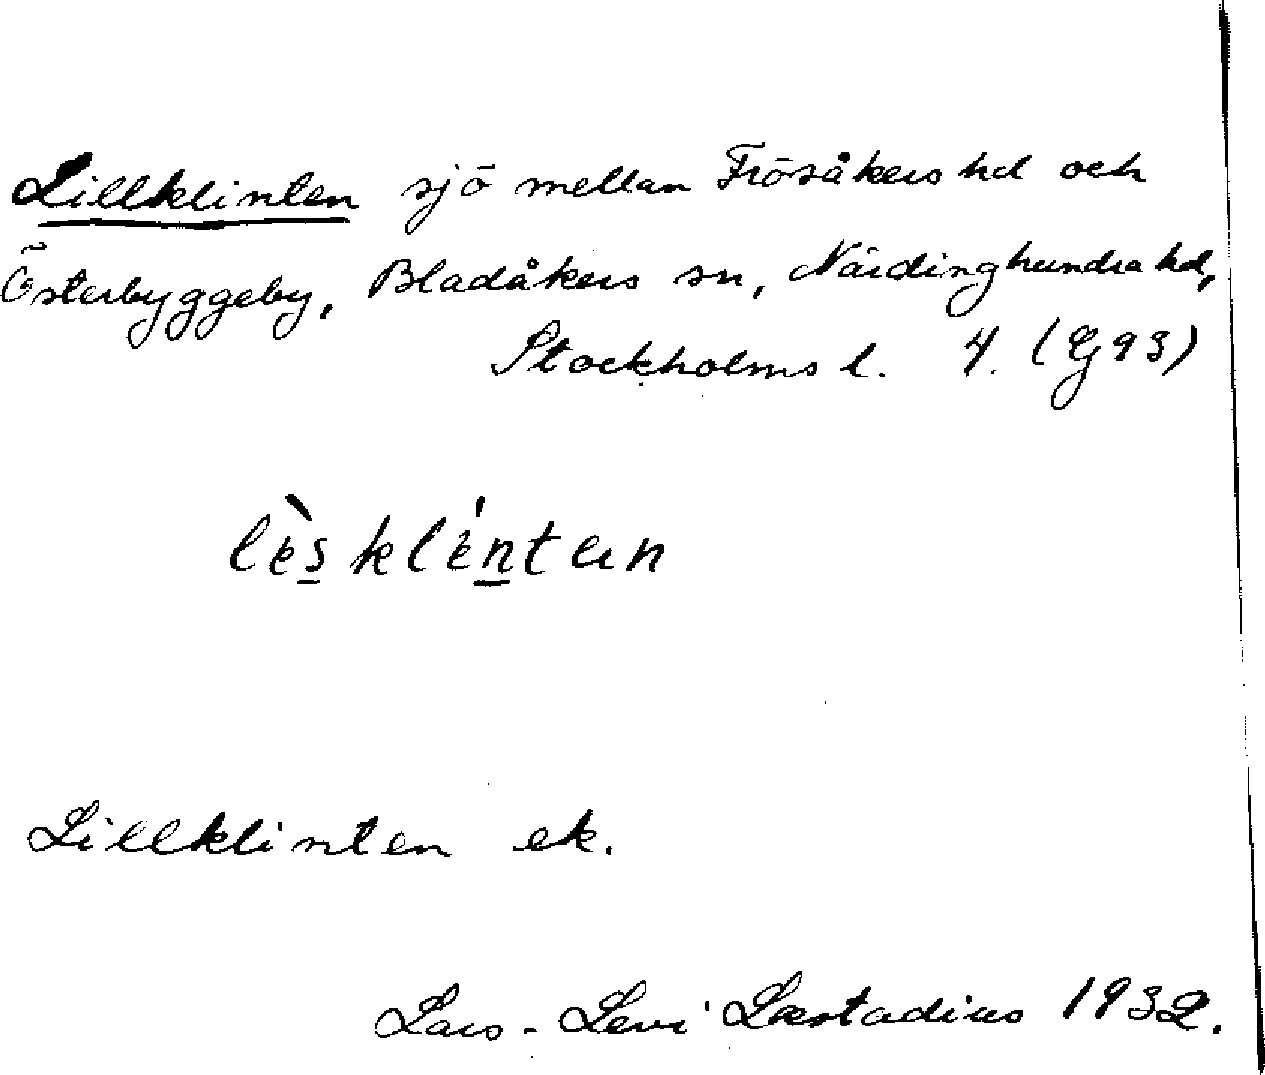 Lillklinten sjö mellan Frösåkers hd och
Österbyggeby, Bladåkers sn, Närdinghundra hd,
Stockholms l. 4. (G 93)
lèsklént an
Lillklinten ek.
Lars-Levi Læstadius 1932.